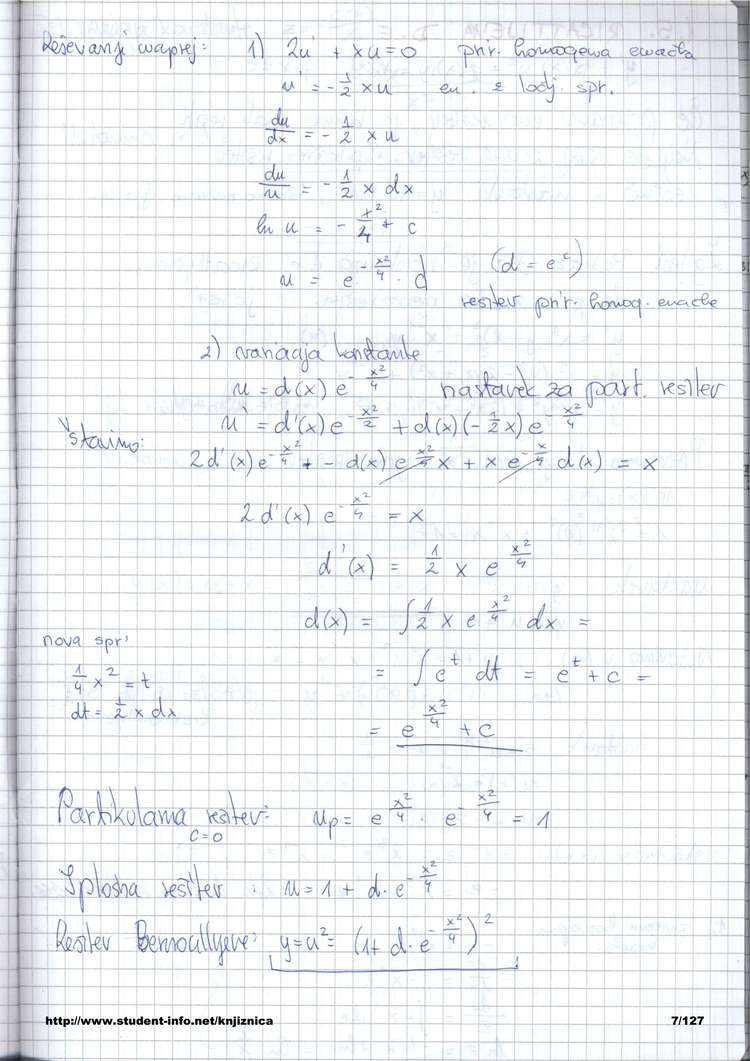 Reševanje naprej: 1) 2u' + xu = 0 prir. homogena enačba
u' = -1/2 xu en. z ločj. spr.
du/dx = -1/2 x u
du/u = -1/2 x dx
ln u = -x²/4 + c
u = e^(-x²/4) · d (d = e^c)
rešitev prir. homog. enačbe
2) variacija konstante
u = d(x) e^(-x²/4) nastavek za part. rešitev
u' = d'(x) e^(-x²/2) + d(x)(-1/2 x) e^(-x²/4)
Vstavimo:
2d'(x) e^(-x²/4) + - d(x) e^(-x²/4) x + x e^(-x/4) d(x) = x
2 d'(x) e^(-x²/4) = x
d'(x) = 1/2 x e^(x²/4)
d(x) = ∫ 1/2 x e^(x²/4) dx =
nova spr'
1/4 x² = t
dt = 1/2 x dx
= ∫ e^t dt = e^t + c =
= e^(x²/4) + c
Partikularna rešitev: u_p = e^(x²/4) · e^(-x²/4) = 1
c=0
Splošna rešitev : u = 1 + d · e^(-x²/4)
Rešitev Bernoullijeve: y = u² = (1 + d · e^(-x²/4))²
http://www.student-info.net/knjiznica 7/127